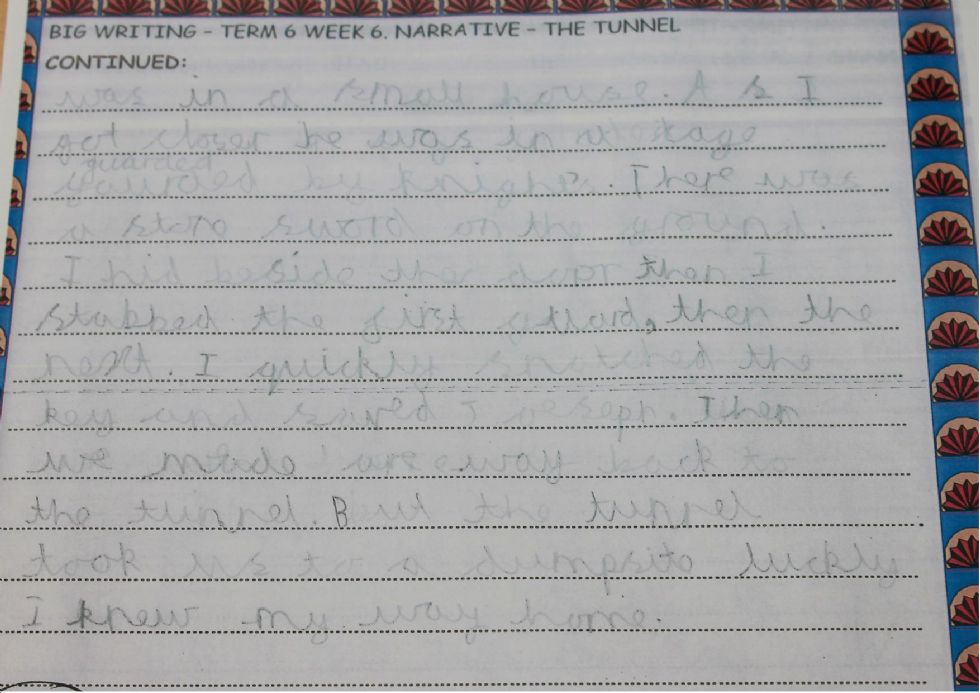 BIG WRITING - TERM 6 WEEK 6. NARRATIVE - THE TUNNEL
CONTINUED:
was in a small house. As I
got closer he was in a cage
guarded
gaurded by knights. There was
a stone sword on the ground.
I hid beside the door then I
stabbed the first guard, then the
next. I quickly snatched the
key and saved Joseph. Then
we made are way back to
the tunnel. But the tunnel
took us to a dumpsite luckly
I knew my way home.